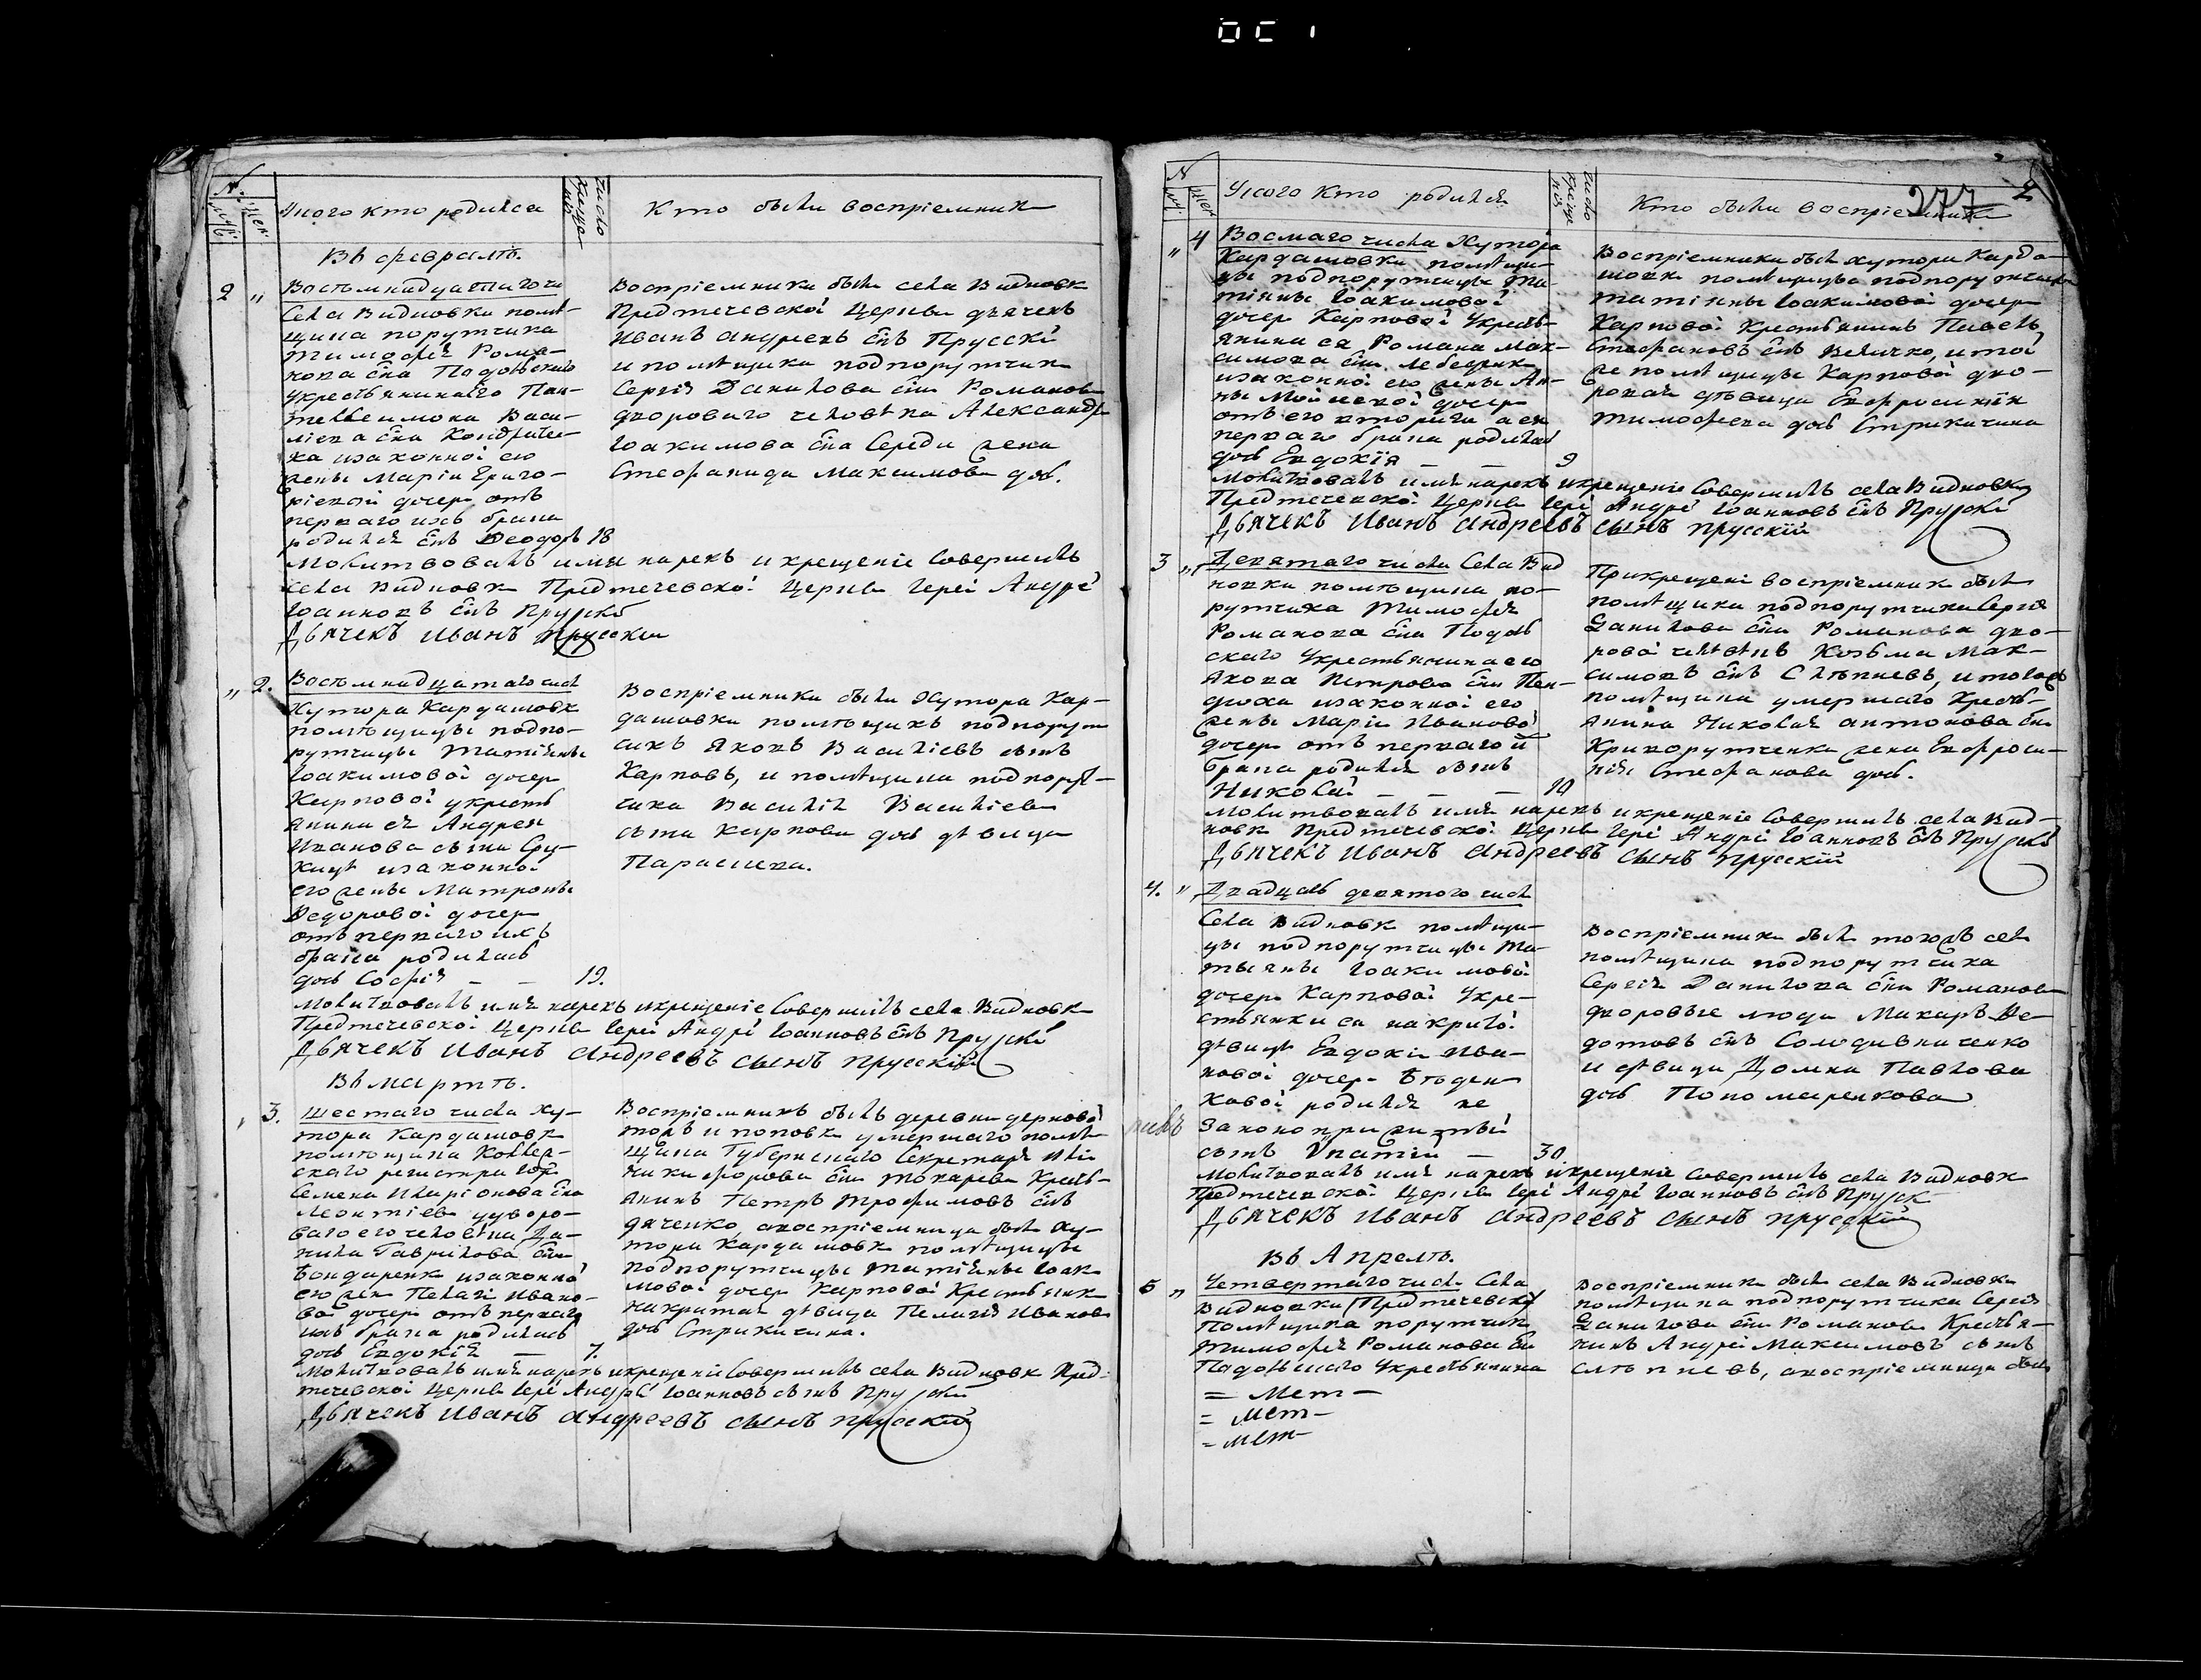 N.
муж жен
У кого кто родился
число крещения
Кто были восприемники
Въ февралѣ.
2 " Восѣмнадцатаго чи
Села Видновки помѣ-
щика порутчика
Тимофея Рома-
нова сна Подольскаго
укрестьянина его Пан-
телеимона Васи-
лиева сна Кондратен-
ка изаконной его
жены Маріи Григо-
ріевой дочери отъ
перваго ихъ брака
родился снъ Феодоръ 18
Восприемники были села Видновки
Предтечевской Церкви дячекъ
Иванъ Андреевъ снъ Прусскі
и помѣщика подпорутчика
Сергія Данилова сна Романова
дворового человѣка Александра
Іоакимова сна Середы жена
Стефанида Максимова дочь.
Молитвовалъ имя нарекъ и крещеніе Совершилъ
Села Видновки Предтечевской Церкви Іерей Андрей
Іоанновъ снъ Прускій
Дьячекъ Иванъ Прусскій
" 2. Восѣмнадцатаго числа
Хутора Кардашовки
помѣщицы подпо-
рутчицы Татіянны
Іоакимовой дочери
Карповой укресть
янина ея Андрея
Иванова сына
изаконной
его жены Матроны
Федоровой дочери
отъ перваго ихъ
брака родилась
дочь Софія — — 19.
Восприемники были Хутора Кар-
дашовки помѣщикъ подпорут
чикъ Яковъ Василіевъ сынъ
Карповъ, и помѣщика подпорут-
чика Василія Василіева
сына Карпова дочь дѣвица
Параскева.
Молитвовалъ имя нарекъ и крещеніе Совершилъ села Видновки
Предтечевской Церкви Іерей Андрей Іоанновъ снъ Прускій
Дьячекъ Иванъ Андреевъ сынъ Прусскій
Въ мартѣ.
" 3. Шестаго числа ху-
тора Кардашовки
помѣщика Коллеж-
скаго регистратора
Семена Иларіонова сна
Леонтіева удворо-
ваго его человѣка Да-
нила Гаврилова сна
Бондаренка изаконной
его жены Пелагіи Ивано-
вой дочери отъ перваго
ихъ брака родилась
дочь Евдокія — 7.
Восприемникъ былъ деревни
и поповки умершаго помѣ-
щика Губернскаго Секретаря
Никифорова сна Токарева Кресть-
янинъ Петръ Трофимовъ снъ
дяченко, авосприемница была ху-
тора Кардашовки помѣщицы
подпорутчицы Татіянны Іоаки-
мовой дочери Карповой Крестьянка
накрытая дѣвица Пелагія Иванова
дочь Стрикичина.
Молитвовалъ имя нарекъ и крещеніе Совершилъ села Видновки Пред-
течевской Церкви Іерей Андрей Іоанновъ сынъ Прускій
Дьячекъ Иванъ Андреевъ сынъ Прусскій
277
N
муж жен
У кого кто родился
число крещения
Кто были восприемники
" 4 Восмаго числа Хутора
Кардашовки помѣщи-
цы подпорутчицы Та-
тіянны Іоакимовой
дочери Карповой Укресть-
янина ея Романа Мак-
симова сна Лебедина
изаконной его жены Ан-
ны Моисеевой дочери
отъ его втораго а ея
перваго брака родилась
дочь Евдокія — — 9
Восприемники были хутора Карда-
шовки помѣщицы подпорутчицы
Татіянны Іоакимовой дочери
Карповой Крестьянинъ Павелъ
Стефановъ снъ Величко, и той
же помѣщицы Карповой дво-
ровая дѣвица Евфросинія
Тимофеева дочь Стрикичина
Молитвовалъ имя нарекъ и крещеніе Совершилъ села Видновки
Предтечевской Церкви Іерей Андрей Іоанновъ снъ Прускій
Дьячекъ Иванъ Андреевъ сынъ Прусскій
3 " Девятаго числа Села Вид
новки помѣщика по-
рутчика Тимофея
Романова сна Подоль
скаго Укрестьянина его
Якова Петрова сна Пен-
дюха изаконной его
жены Маріи Ивановой
дочери отъ перваго
брака родился сынъ
Николай — — — 10
Прикрещеніи восприемники были
помѣщика подпорутчика Сергія
Данилова сна Романова дво-
ровой человѣкъ Козьма Мак-
симовъ снъ Слѣпневъ, и тогожъ
помѣщика умершаго Кресть-
янина Николая Антонова сна
Криворутченка жена Евфроси-
нія Стефанова дочь.
Молитвовалъ имя нарекъ и крещеніе Совершилъ села Вид-
новки Предтечевской Церкви Іерей Андрей Іоанновъ снъ Прускій
Дьячекъ Иванъ Андреевъ сынъ Прусскій
4. " Двадцать девятого числа
Села Видновки помѣщи-
цы подпорутчицы Та-
тьяны Іоакимовой
дочери Карповой Укре-
стьянки ея накрытой
дѣвицы Евдокіи Ива-
новой дочери
родился не
Законоприжитый
сынъ Ипатій — 30
Восприемники были тогожъ села
помѣщика подпорутчика
Сергія Данилова сна Романова
дворовые люди Макаръ Фе-
дотовъ снъ Солодивниченко
и дѣвица Домна Павлова
дочь Пономаренкова
Молитвовалъ имя нарекъ и крещеніе Совершилъ села Видновки
Предтечевской Церкви Іерей Андрей Іоанновъ снъ Прускій
Дьячекъ Иванъ Андреевъ сынъ Прусскій
Въ Апрелѣ.
5 " Четвертаго числа Села
Видновки Предтечевской
Помѣщика порутчика
Тимофея Романова сна
Подольскаго Укрестьянина
= Мет —
= Мет —
= Мет —
Восприемники были села Видновки
помѣщика подпорутчика Сергія
Данилова сна Романова Крестья-
нинъ Андрей Максимовъ сынъ
Слѣпневъ, авосприемница была